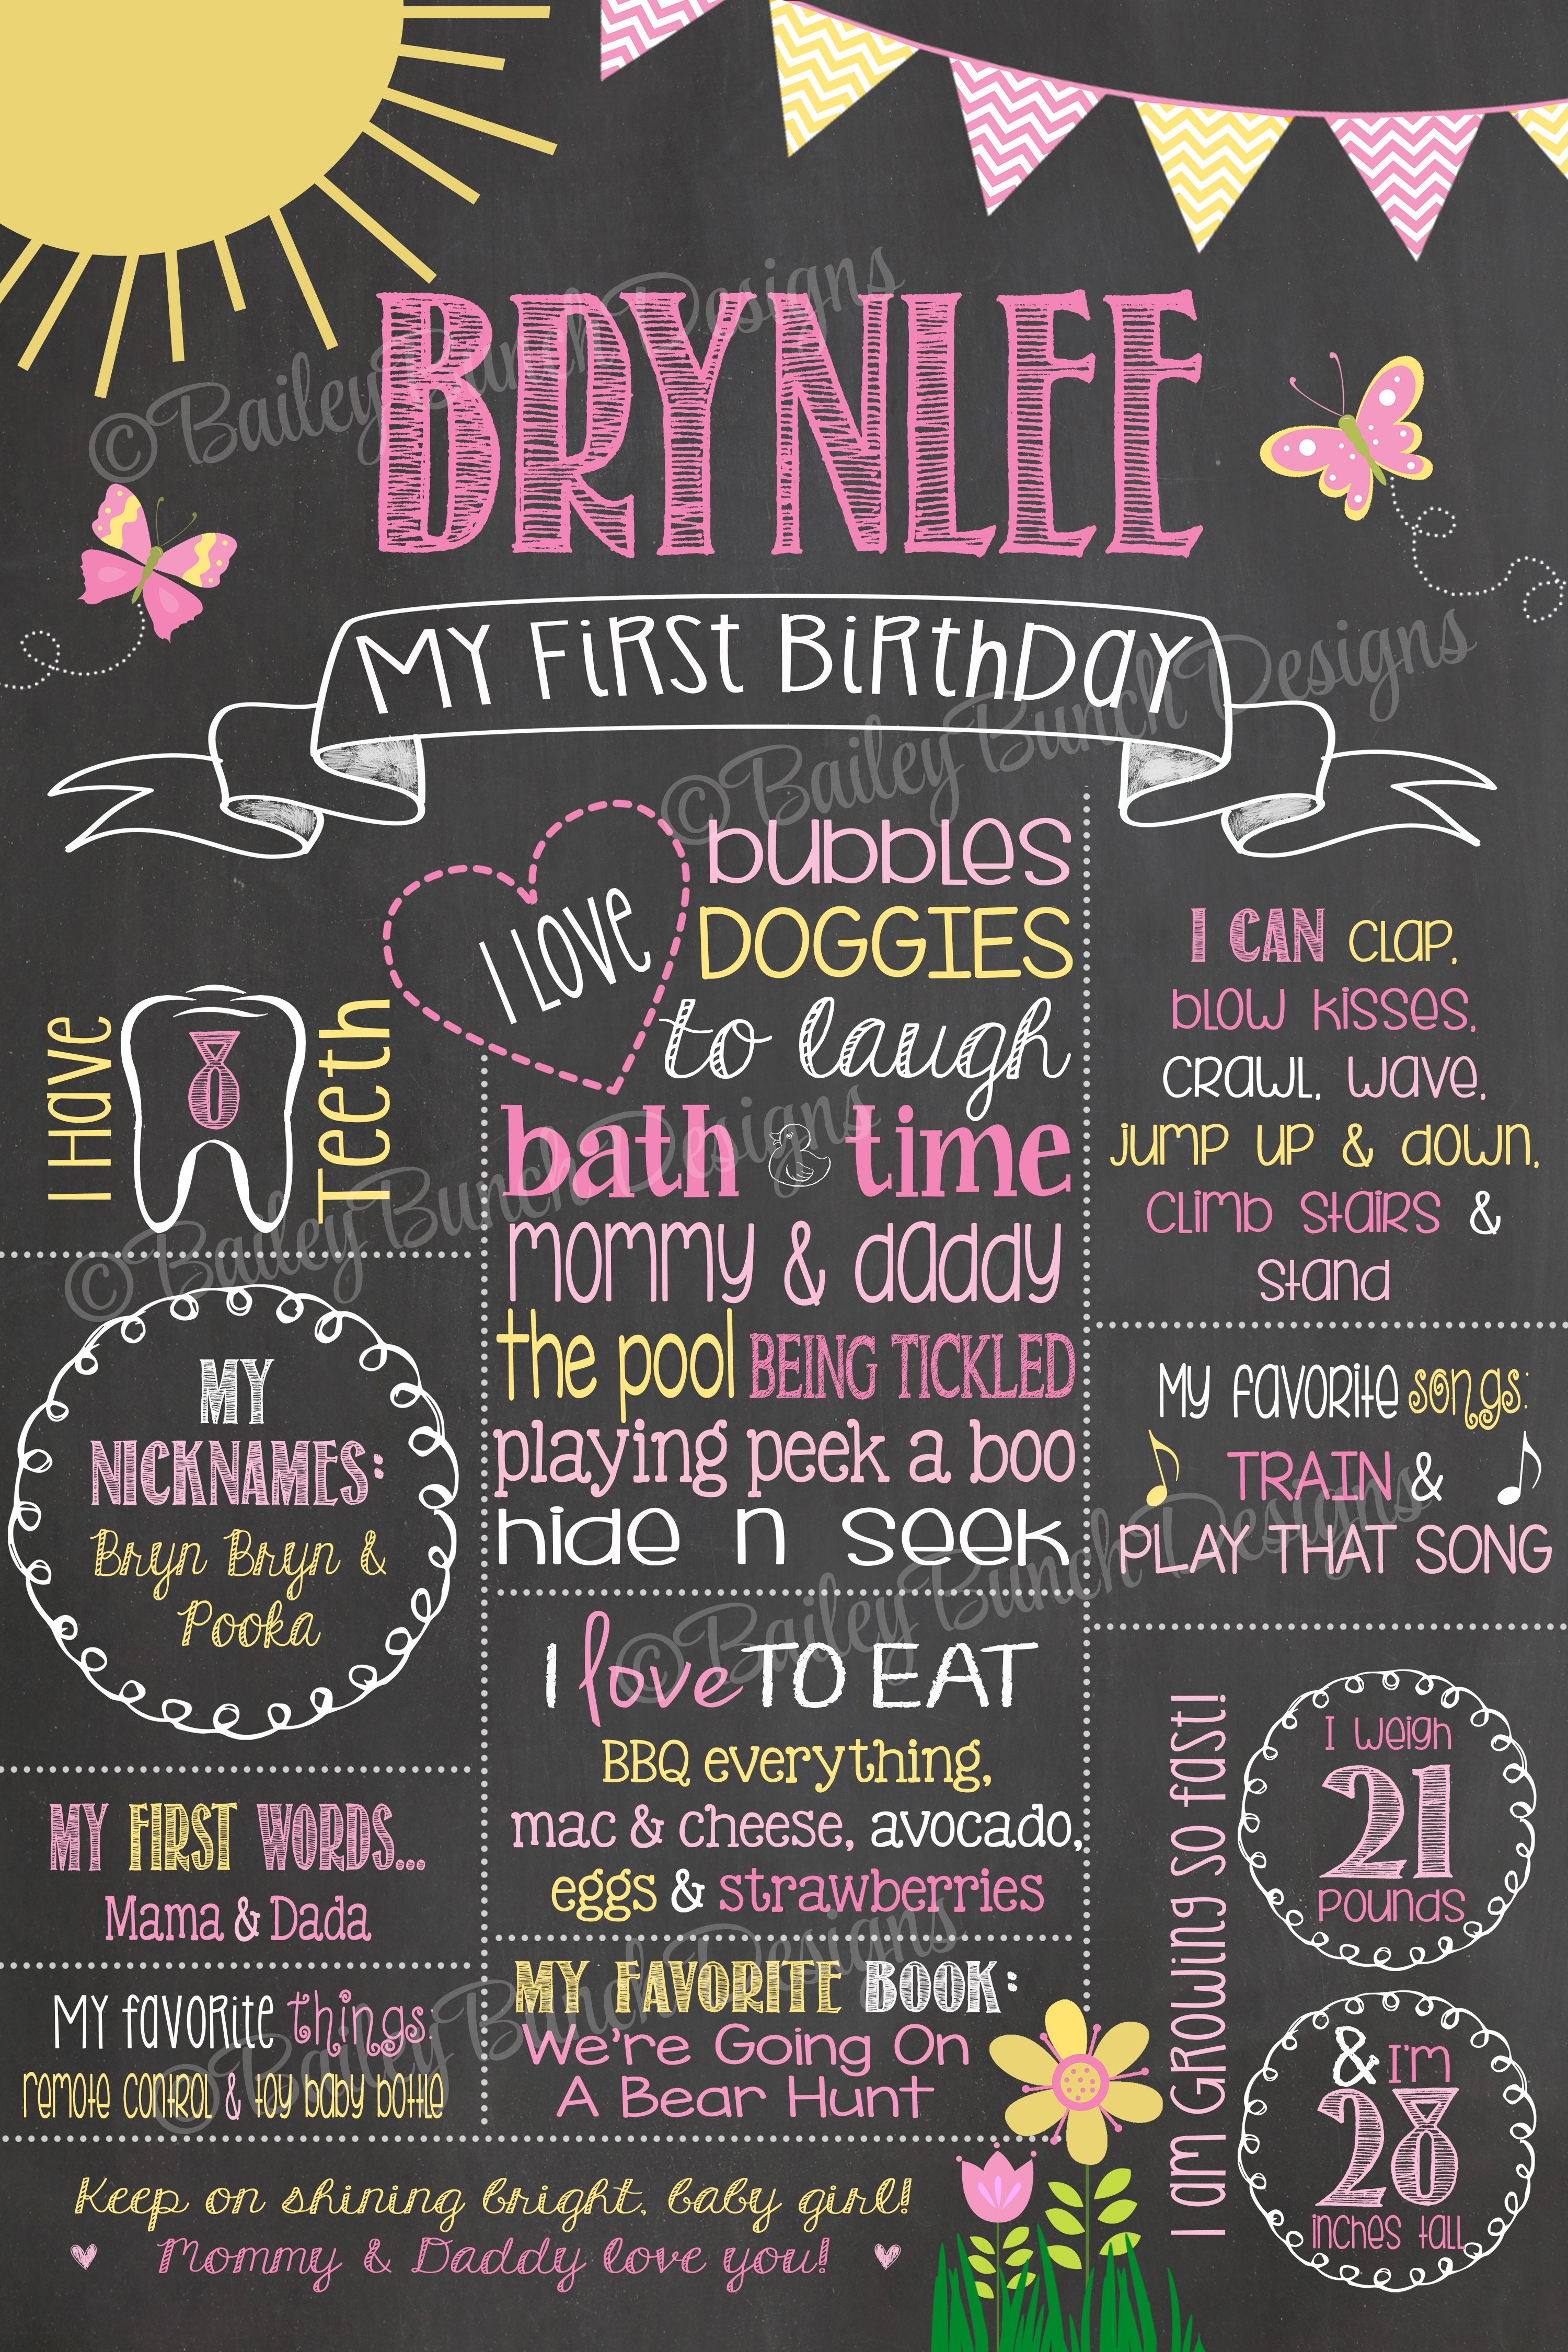 BRYNLEE
MY FiRST BiRthDay
I LOVE
bubbles
DOGGIES
to laugh
bath & time
mommy & daddy
the pool BEING TICKLED
playing peek a boo
hide n seek
I Have
8
Teeth
MY
NICKNAMES:
Bryn Bryn &
Pooka
MY FIRST WORDS...
Mama & Dada
My favorite things:
remote control & toy baby bottle
I love TO EAT
BBQ everything,
mac & cheese, avocado,
eggs & strawberries
MY FAVORITE BOOK:
We're Going On
A Bear Hunt
I CAN clap,
blow kisses,
crawl, wave,
jump up & down,
climb stairs &
stand
My favorite songs:
TRAIN &
PLAY THAT SONG
I am GROWING SO fast!
I weigh
21
POUNDS
& I'm
28
inches tall
Keep on shining bright, baby girl!
Mommy & Daddy love you!
©Bailey Bunch Designs
©Bailey Bunch Designs
©Bailey Bunch Designs
©Bailey Bunch Designs
©Bailey Bunch Designs